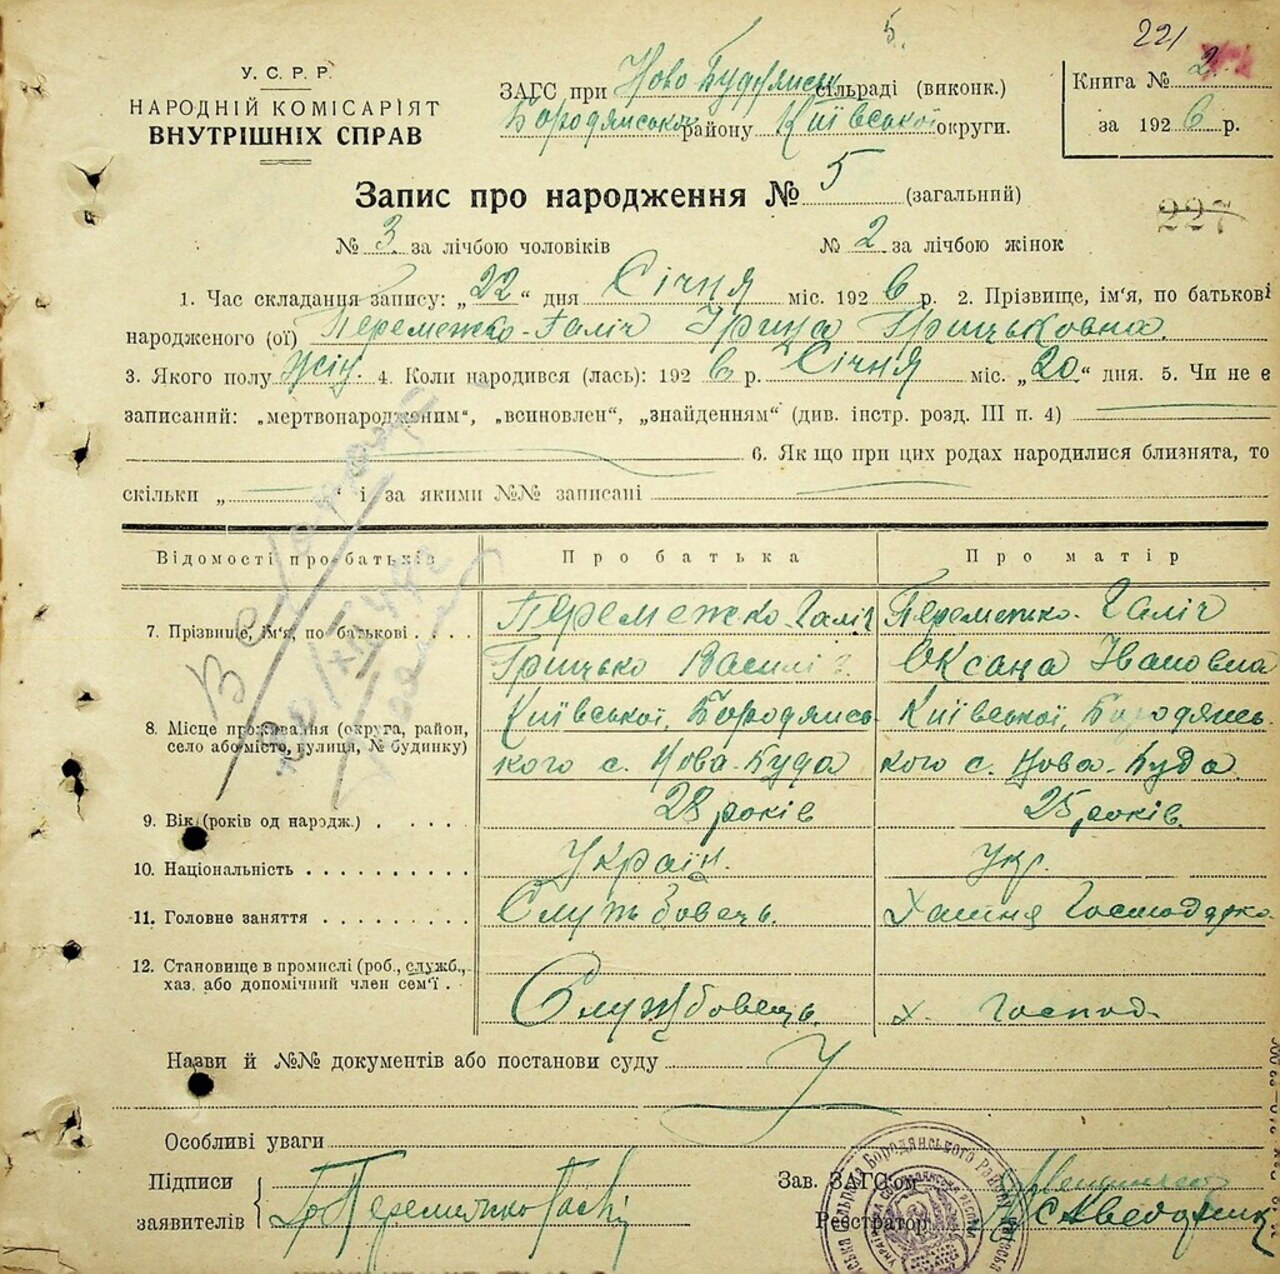 5.
221
У. С. Р. Р.
НАРОДНІЙ КОМІСАРІЯТ
ВНУТРІШНІХ СПРАВ
ЗАГС при Ново Будянськ сільраді (виконк.)
Бородянськог району Київської округи.
Книга № 2
за 1926 р.
Запис про народження № 5 (загальний)
227
№ 3 за лічбою чоловіків № 2 за лічбою жінок
1. Час складання запису: „22“ дня Січня міс. 1926 р. 2. Прізвище, ім'я, по батькові
народженого (ої) Перемежко-Галіч Ірина Грицьковна.
3. Якого полу Жін. 4. Коли народився (лась): 1926 р. Січня міс. „20“ дня. 5. Чи не є
записаний: „мертвонародженим“, „всиновлен“, „знайденям“ (див. інстр. розд. III п. 4)
6. Як що при цих родах народилися близнята, то
скільки „ “ і за якими №№ записані
Відомості про батьків Про батька Про матір
7. Прізвище, ім'я, по батькові . . . . Перемежко-Галіч Перемежко-Галіч
Грицько Василів. Оксана Івановна
8. Місце проживання (округа, район, Київської, Бородянсь- Київської, Бородянсь-
село або місто, вулиця, № будинку) кого с. Нова-Буда кого с. Нова-Буда.
9. Вік (років од народж.) . . . . . 28 років 25 років.
10. Національність . . . . . . . . . . Україн. Укр.
11. Головне заняття . . . . . . . . . Службовець. Хатня Господарка.
12. Становище в промислі (роб., служб.,
хаз. або допомічний член сем'ї . Службовець. х. Господ.
Назви й №№ документів або постанови суду
Особливі уваги
Підписи
заявителів
Перемежко Галіч
Зав. ЗАГС'ом
Реєстратор
Бородянського Району